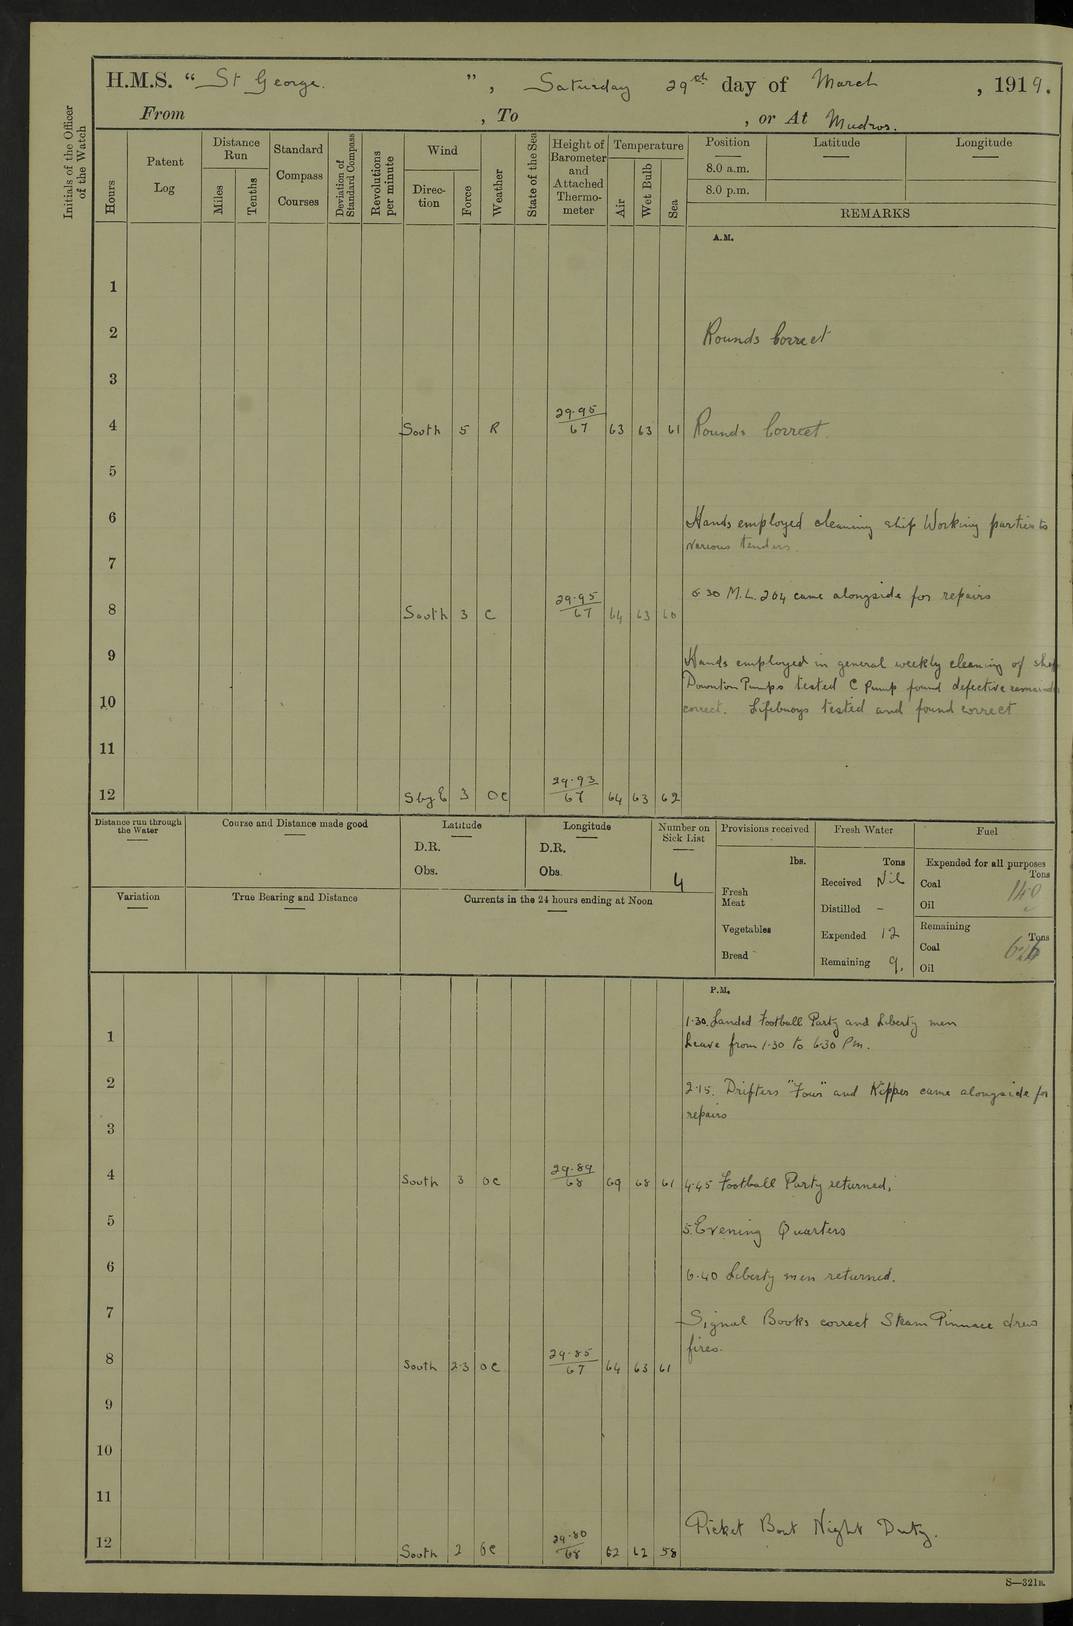 H.M.S. “St George.”, Saturday 29th day of March, 1919.
From , To , or At Mudros.
Initials of the Officer of the Watch
Hours
Patent Log
Distance Run
Miles
Tenths
Standard Compass Courses
Deviation of Standard Compass
Revolutions per minute
Wind
Direction
Force
Weather
State of the Sea
Height of Barometer and Attached Thermometer
Temperature
Air
Wet Bulb
Sea
Position
Latitude
Longitude
8.0 a.m.
8.0 p.m.
REMARKS
A.M.
1
2 Rounds Correct
3
4 South 5 R 29.95/67 63 63 61 Rounds Correct.
5
6 Hands employed cleaning ship Working parties to
various tenders.
7
6.30 M.L. 204 came alongside for repairs
8 South 3 C 29.95/67 64 63 60
9 Hands employed in general weekly cleaning of ship
Downton Pumps tested C Pump found defective remainder
10 correct. Lifebuoys tested and found correct
11
12 S by E 3 OC 29.93/67 64 63 62
Distance run through the Water
Course and Distance made good
Latitude
D.R.
Obs.
Longitude
D.R.
Obs.
Number on Sick List
4
Provisions received
lbs.
Fresh Meat
Vegetables
Bread
Fresh Water
Tons
Received Nil
Distilled -
Expended 12
Remaining 9.
Fuel
Expended for all purposes
Tons
Coal 140
Oil
Remaining
Tons
Coal
Oil
Variation
True Bearing and Distance
Currents in the 24 hours ending at Noon
P.M.
1.30. Landed Football Party and Liberty men
1 Leave from 1.30 to 6.30 Pm.
2 2.15. Drifters "Four" and Kipper came alongside for
repairs
3
4 South 3 OC 29.89/68 69 68 61 4.45 Football Party returned,
5 5. Evening Quarters
6 6.40 Liberty men returned.
7 Signal Books correct Steam Pinnace drew
fires.
8 South 2.3 OC 29.85/67 64 63 61
9
10
11
Picket Boat Night Duty.
12 South 2 OC 29.80/68 62 62 58
S—321B.